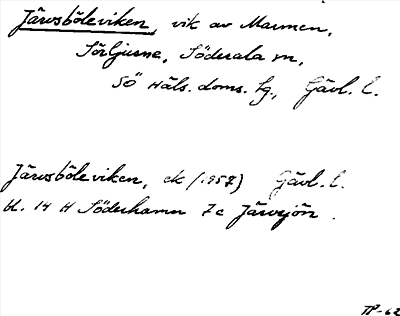 Järvsböleviken, vik av Marmen,
Söljusne, Söderala sn,
SÖ Häls. doms. tg., Gävl. l.
Järvsböleviken, ek (1957) Gävl. l.
bl. 14 H Söderhamn 7c Järvsjön.
TP-62